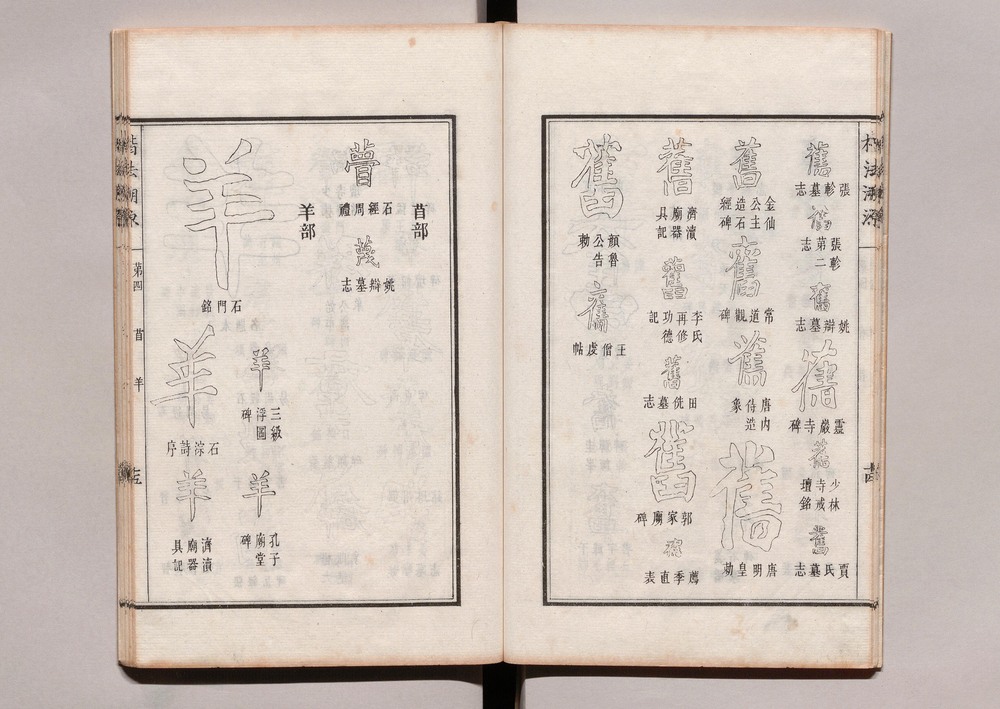 舊
張軫墓志
舊
張軫第二志
舊
姚辯墓志
舊
靈巖寺碑
舊
少林寺戒壇銘
舊
賈氏墓志
舊
金仙公主造石經碑
舊
常道觀碑
舊
唐内侍造象
舊
唐明皇勅
舊
濟瀆廟器具記
舊
李氏再修功德記
舊
田侁墓志
舊
郭家廟碑
薦季直表
舊
顏魯公告勅
舊
王僧虔帖
楷法溯源
第四
苜
羊
苜部
瞢
石經周禮
蔑
姚辯墓志
羊部
羊
石門銘
羊
三級浮圖碑
羊
孔子廟堂碑
羊
石淙詩序
羊
濟瀆廟器具記